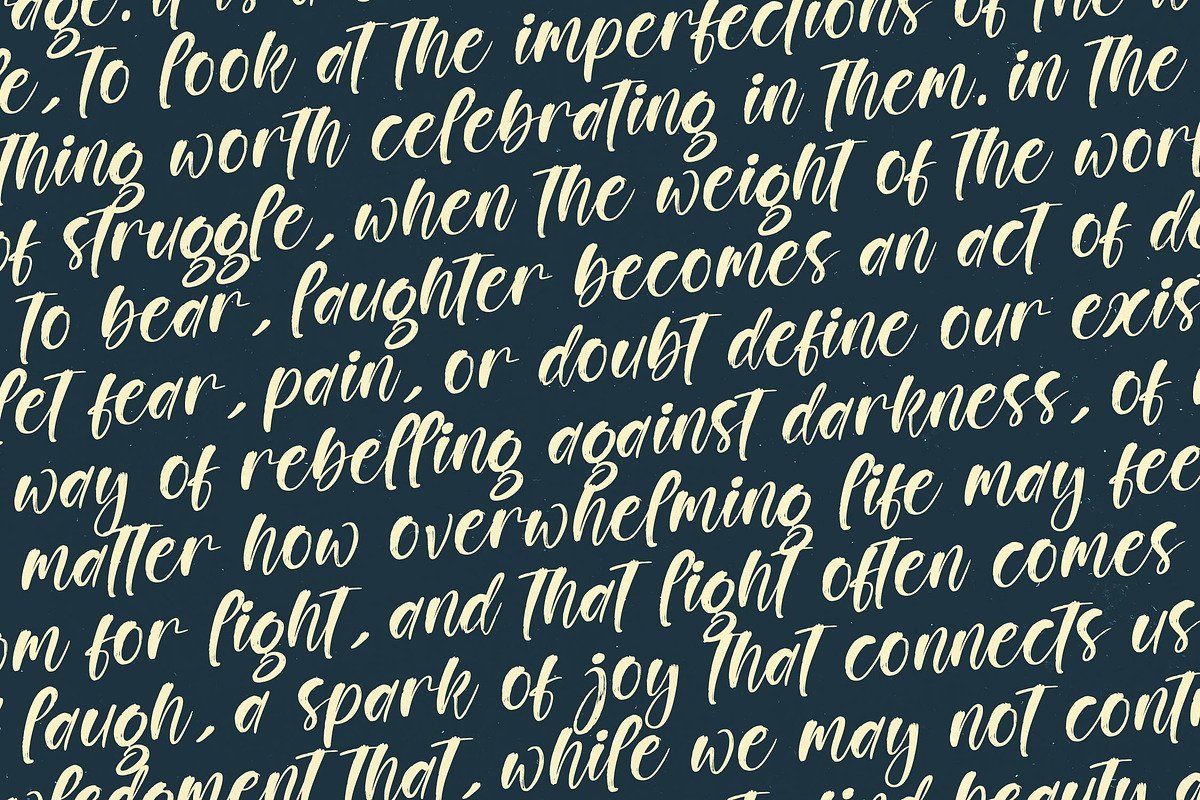 it is a
to look at the imperfections of the
thing worth celebrating in them. in the
of struggle, when the weight of the
To bear, laughter becomes an act of
let fear, pain, or doubt define our
way of rebelling against darkness, of
matter how overwhelming life may
for light, and that light often comes
laugh, a spark of joy that connects us
that, while we may not
beauty